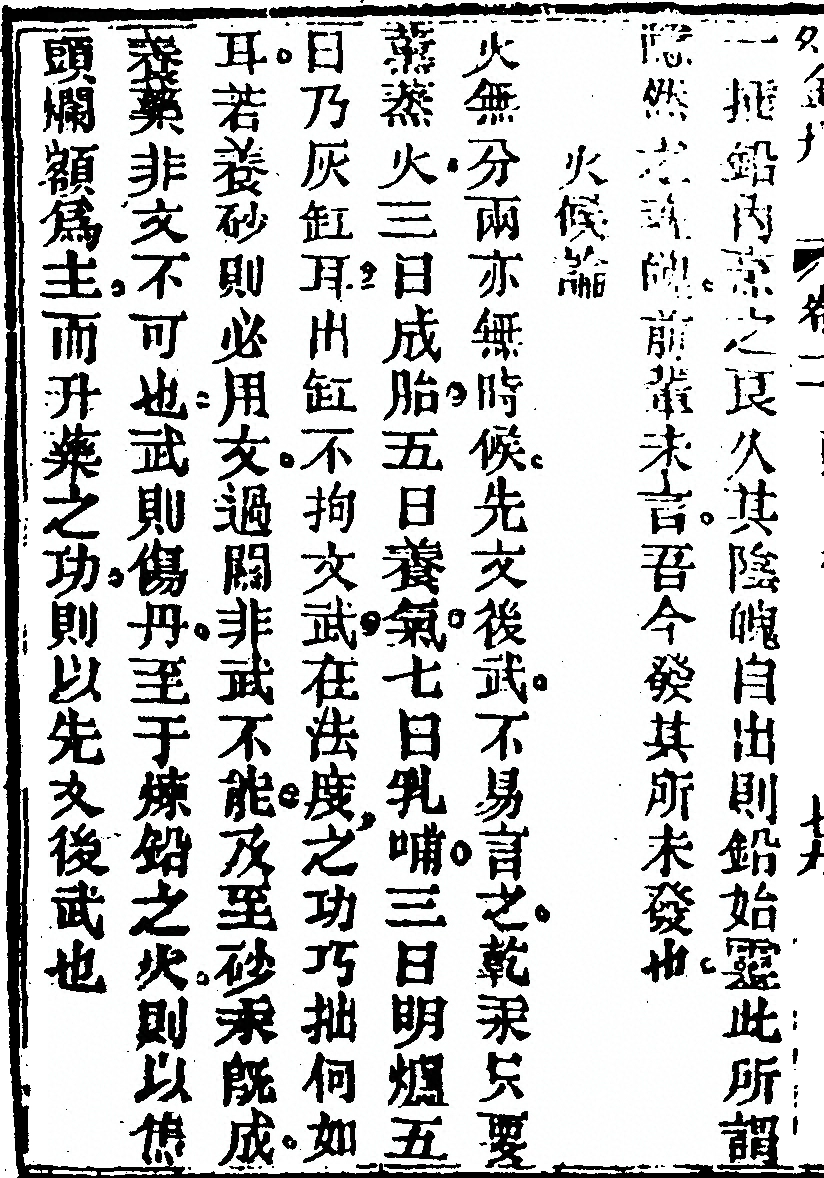 一捶鉛內煮之良久其陰魄自出則鉛始靈此所謂
隱然水魂魄前輩未言吾今發其所未發也
火候論
火無分兩亦無時候先文後武不易言之乾汞只要
薰蒸火三日成胎五日養氣七日乳哺三日明爐五
日乃灰缸耳出缸不拘文武在法度之功巧拙何如
耳若養砂則必用文過關非武不能及至砂汞既成
養藥非文不可也武則傷丹至于煉鉛之火則以焦
頭爛額為主而升藥之功則以先文後武也